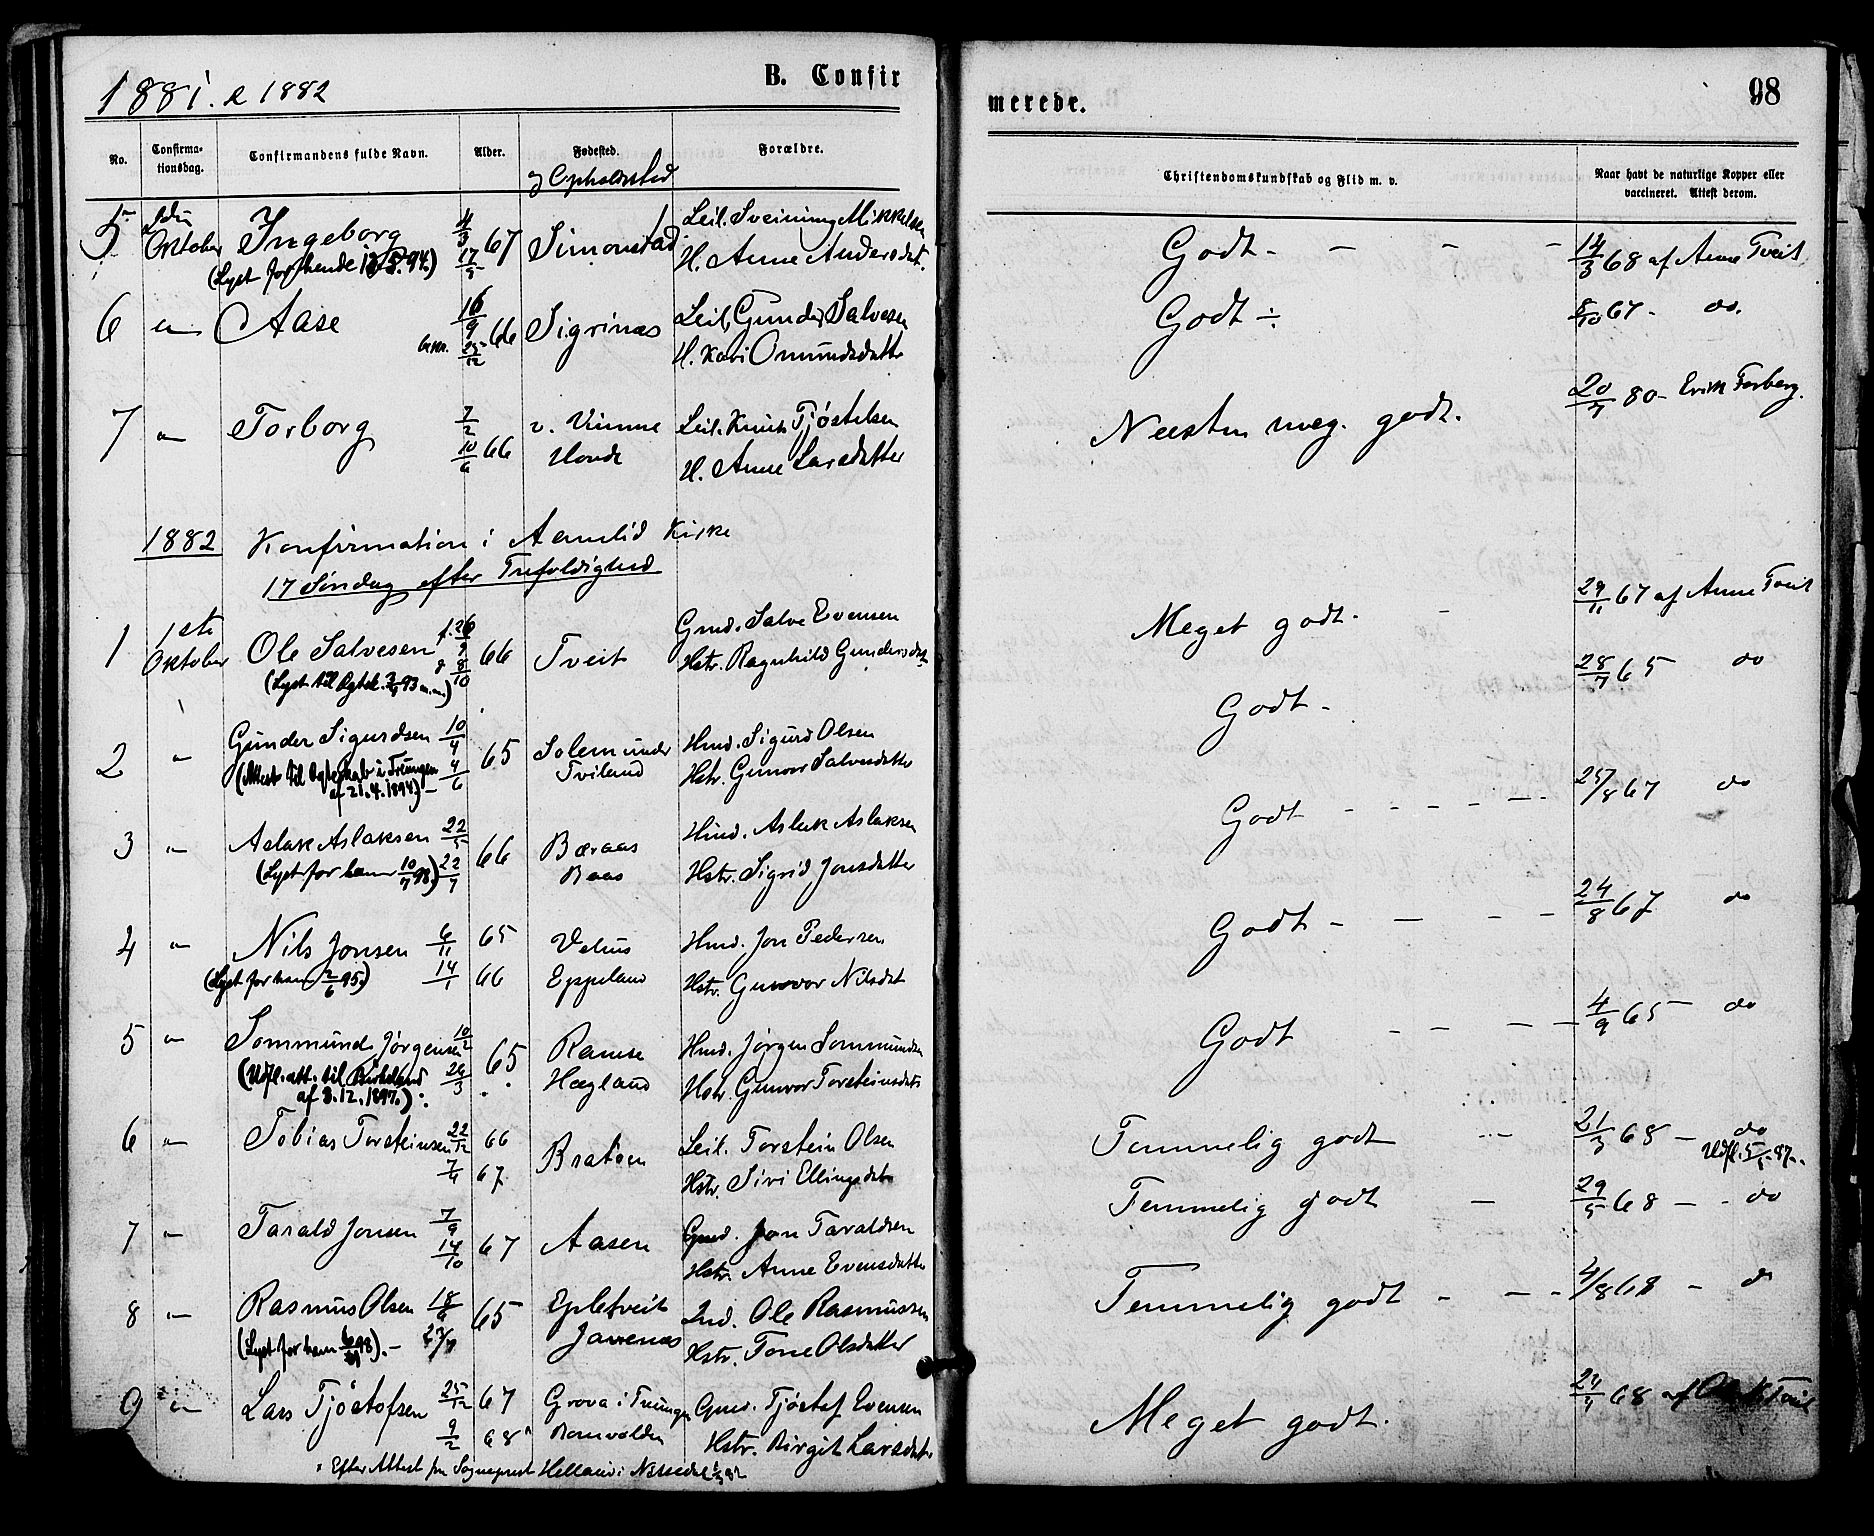 1881. & 1882
B. Confir
merede.
98
No.
Confirma-
tionsdag.
Confirmandens fulde Navn.
Alder.
Fødested.
og Opholdsted
Forældre.
Christendomskundskab og Flid m. v.
Naar havt de naturlige Kopper eller
vaccineret. Attest derom.
5 Oktober Ingeborg 4/3 67 Simonstad Leil. Sveinung Mikkelsen
(Lyst for hende 94.) 17/5 H. Anne Andersdat.
Godt - 14/3 68 af Anne Tveit
6 " Aase 16/9 66 Sigrinæs Leil. Gunder Salvesen
25/12 H. Kari Omundsdatter
Godt ÷ 8/10 67 - do.
7 " Torborg 7/2 66 v. Vimme Leil. Knut Tjøstelsen
10/6 Hovde H. Anne Larsdatter
Næsten meg. godt. 20/7 80 - Erik Forberg.
1882 Konfirmation i Aamlid Kirke
17 Søndag efter Trefoldighed
1 1ste Oktober Ole Salvesen f. 26/9 66 Tveit Gmd. Salve Evensen
(Lyst til Ægtsk. 93 m.m.) 8/10 Hstr. Ragnhild Gundersdat
Meget godt. 29/11 67 af Anne Tveit
2 " Gunder Sigurdsen 10/4 65 Solemunder Hmd. Sigurd Olsen
(Attest til Ægteskab i Treungen 4/6 Tviland Hstr. Gunvor Salvesdatter
af 21.4.1894.) -
Godt - 28/7 65 do
3 " Aslak Aslaksen 22/5 66 Bæraas Hmd. Aslak Aslaksen
(Lyst for ham 10/7 98.) 22/7 Baas Hstr. Sigrid Jonsdatter
Godt - 25/8 67 do
4 " Nils Jonsen 6/11 65 Vehus Hmd. Jon Pedersen
(Lyst for ham 2/6 95.) 14/1 66 Eppeland Hstr. Gunvor Nilsdat
Godt - 24/8 67 do
5 " Sommund Jørgensen 10/2 65 Ramse Hmd. Jørgen Sommundsen
(Udfl.att. til Birkeland 26/3 Hægland Hstr. Gunvor Torsteinsdat
af 3.12.1897.)
Godt 4/9 65 - do
6 " Tobias Torsteinsen 22/12 66 Bratøen Leil. Torstein Olsen
7/4 67 Hstr. Siri Ellingsdat
Temmelig godt 21/3 68 - do
Udfl. 87.
7 " Tarald Jonsen 7/9 67 Aasen Gmd. Jon Taraldsen
14/10 Hstr. Anne Evensdatter
Temmelig godt - 29/5 68 - do
8 " Rasmus Olsen 18/6 65 Epletveit Ind. Ole Rasmussen
(Lyst for ham 98). - 23/7 Javnenæs Hstr. Tone Olsdatter
Temmelig godt - 4/8 68 - do
9 " Lars Tjøstofsen 25/12 67 Grova i Treungen Gmd. Tjøstof Evensen
9/2 68 Hstr. Birgit Larsdatter
Meget godt. 68 af
Efter Attest fra Sogneprest Helland i Nissedal